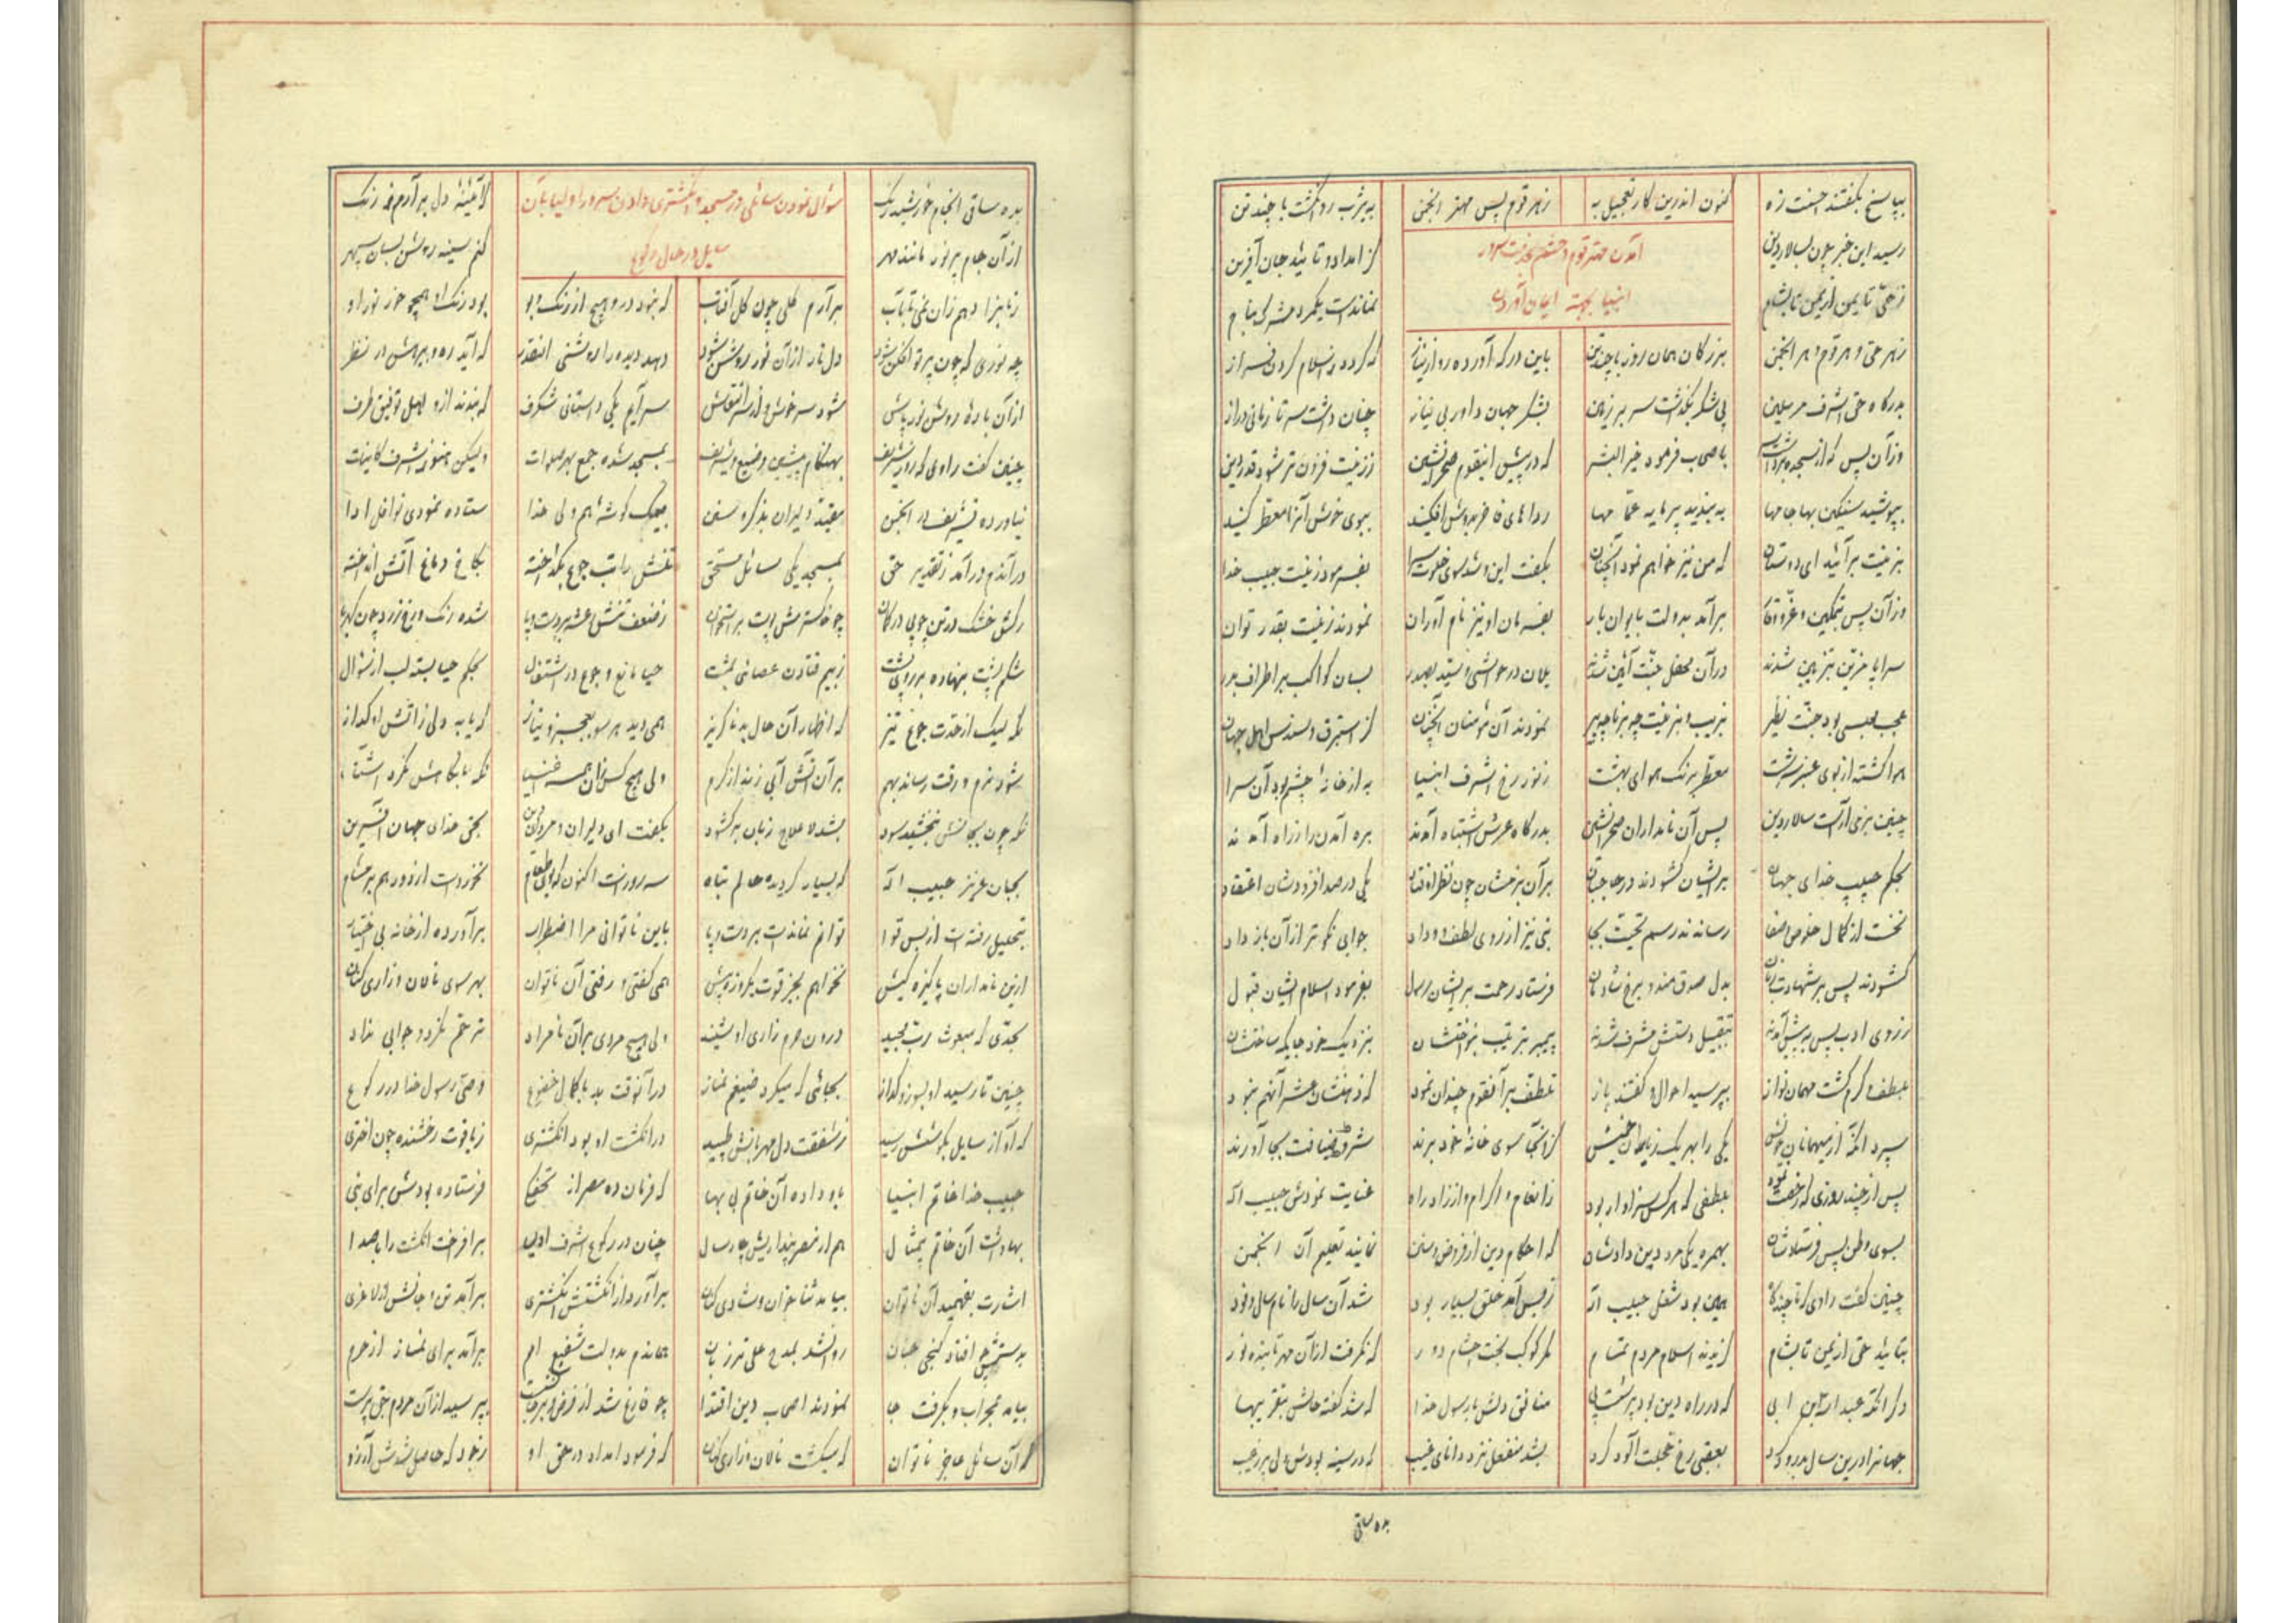 بپاسخ بگفتند جفت زه کنون اندرین کار تعجیل به ز هر قوم پس مهتر انجمن به یثرب روان گشت با چند تن
آمدن مهتر قوم بخدمت سرور
انبیا بجهة ایمان آوردن
رسید این خبر چون بسالار دین کز امداد و تائید جان آفرین
ز حی تا یمن از یمن تا بشام نماندست یکمرد مشرک بنام
ز هر حی و هر قوم و هر انجمن بزرگان همان روز با چند تن باین درگه آورده روز نیاز که گردد باسلام گردن فراز
بدرگاه حق اشرف مرسلین پی شکر بگذاشت سر بر زمین بشکر جهان داور بی نیاز چنان داشت سر تا زمانی دراز
وزآن پس که از سجده برداشت سر باصحاب فرمود خیر البشر که در پیش اینقوم صحرانشین ز زینت فزون تر شود قدر دین
بپوشید سنگین بها جامها به بندید پر مایه عمامها رداهای فاخر بدوش افکنید ببوی خوش آنرا معطر کنید
بزینت برآئید ای دوستان که من نیز خواهم نمود آنچنان بگفت این و شد سوی خلوت سرا بفرمود زینت حبیب خدا
وزآن پس بتمکین و عز و وقار برآمد بدولت بایوان بار بفرمان او نیز نام آوران نمودند زینت بقدر توان
سراپا مزین بتزیین شدند در آن محفل جنت آئین شدند یلان در حواشی و سید بصدر بسان کواکب بر اطراف بدر
عجب مجلسی بود جنت نظیر بزیب و بزینت چه برنا چه پیر نمودند آن مؤمنان آنچنان کز استبرق و سندس اهل جهان
هوا گشته از بوی عنبر سرشت معطر برنگ هوای بهشت ز نور رخ اشرف انبیا به از خانهٔ چشم بود آن سرا
چنین بزمی آراست سالار دین پس آن نامداران صحرانشین بدرگاه عرش اشتباه آمدند بره آمدن را ز راه آمدند
بحکم حبیب خدای جهان بر ایشان گشودند در حاجبان بر آن بزمشان چون نظر اوفتاد یکی در صد افزودشان اعتقاد
نخست از کمال خلوص و صفا رساندند رسم تحیت بجا نبی نیز از روی لطف و وداد جوابی نکوتر از آن باز داد
گشودند پس بر شهادت زبان بدل صدق مند و برخ شادمان فرستاد رحمت بر ایشان رسول بفرمود اسلام ایشان قبول
ز روی ادب پس به پیش آمدند بتقبیل دستش مشرف شدند پیمبر بترتیب بنواختشان بنزدیک خود جایگه ساختشان
بلطف و کرم گشت مهمان نواز بپرسید احوال و گفتند باز تلطف بر آنقوم چندان نمود که در ذهنشان عشر آنهم نبود
سپرد آنگه از میهمانان خویش یکی را بهر یک ز یاران خویش کز آنجا سوی خانهٔ خود برند شروط ضیافت بجا آورند
پس از چند روزی که رخصت نمود بلطفی که هر کس سزاوار بود ز انعام و اکرام و از زاد راه عنایت نمودش حبیب اله
بسوی وطن پس فرستادشان بهمره یکی مرد دین دادشان که احکام دین از فروض و سنن نماید تعلیم آن انجمن
چنین گفت راوی که تا چند گاه همین بود شغل حبیب اله ز بس آمد خلق بسیار بود شد آن سال را نام سال وفود
بتائید حق از یمن تا بشام گزیدند اسلام مردم تمام مگر کوکب بخت اعشام دور که نگرفت از آن مهر تابنده نور
دگر آنکه عبد الله ابن ابی که در راه دین بود پر شت پی منافق دلش با رسول خدا که شد گفته حالش بتقریبها
جهانرا درین سال بدرود کرد بعقبی رخ خجلت آلود کرد بشد منفعل نزد دانای غیب که در سینه بودش دلی پر ز عیب
بده ساقی
بده ساقی آنجام خورشید رنگ کز آئینهٔ دل برآرم ز زنگ
سوال نمودن سائلی در مسجد و انگشتری دادن سرور اولیا بآن
سایل در حال رکوع
از آن جام پر نور مانند مهر کنم سینه روشن بسان سپهر
برآرم گلی چون گل آفتاب که نبود درو هیچ از رنگ و بو بود رنگ او همچو خور نور او
چه نوری که چون پرتو افکن شود دل تار از آن نور روشن شود دهد دیده را روشنی آنقدر که آید ره و بیرهش در نظر
از آن بادهٔ روشن نور پاش شود سر خوش و سراید یکی داستانی شگرف که بندند ازو اهل توفیق طرف
چنین گفت راوی که روزی شریف بهنگام پیشین وضیع و شریف بمسجد شده جمع بهر صلوات ولیکن هنوز اشرف کاینات
نیاورده تشریف در انجمن مقید دلیران بذکر و سنن بیک گوشه هم ولی خدا ستاده نمودی نوافل ادا
در آندم در آمد ز تقدیر حق بمسجد یکی سائل مستحق تنش را تب جوع بگداخته بکاغ دماغ آتش انداخته
رگش خشک در تن چو پی در کمان چو خاکستری پوست بر استخوان ز ضعف تنش رعشه بر دست و پا شده رنگ رخ زرد چون کهربا
شکم پشت بنهاده بر روی پشت ز بیم فتادن عصائی بمشت حیا مانع و جوع در اشتعال بحکم حیا بسته لب از سؤال
که لیک از حدت جوع تیز که اظهار آن حال بد ناگزیر همی دید هر سو بعجز و نیاز که یابد دلی ز آتش او گداز
شود نرم و رقت رساند بهم بر آن آتش آبی زند از کرم ولی هیچ کس زان همه اغنیا نگه با نگاهش نکرد آشنا
نگه چون بجانش نبخشید سود بشد لاعلاج زبان برگشود بگفت ای دلیران و مردان دین بحق خدای جهان آفرین
بجان عزیز حبیب اله که بسیار گردیده حالم تباه سه روزست اکنون که بوی طعام نخوردست از دور هم بر مشام
بتحلیل رفته است از بس قوا توانم نماندست بر دست و پا باین ناتوانی مرا اضطراب برآورده از خانه بی اختیار
ازین نامداران پاکیزه کیش نخواهم بجز قوت یکروزه بیش همی گفتی و رفتی آن ناتوان بهر سوی نالان و زاری کنان
بجدی که مبعوث رب مجید درون حرم زاری او شنید ولی هیچ مردی بر آن نامراد ترحم نکرد و جوابی نداد
چنین تا رسید او بسوز و گداز بجائی که میکرد ضیغم نماز در آنوقت بد با کمال خضوع وصی رسول خدا در رکوع
که آواز سایل بگوشش رسید ز شفقت دل مهربانش طپید در انگشت او بود انگشتری ز یاقوت رخشنده چون اختری
حبیب خدا خاتم انبیا باو داده آن خاتم بی بها که فرمان ده مصر از تحفها فرستاده بودش برای نبی
بها داشت آن خاتم بیمثال چنان در رکوع اشرف اولیا برافراخت انگشت را با صدا
اشارت بفهمید آن ناتوان بیامد ثناخوان و شادی کنان برآورد از انگشتش انگشتری برآمد تن و جانش از لاغری
بدستش افتاد گنجی عیان روانشد بمدح علی تر زبان همان دم بدولت شفیع امم برآمد برای نماز از حرم
بیامد بمحراب و بگرفت جا نمودند اصحاب دین اقتدا چو فارغ شد از فرض و برخاست بپرسید از آن مردم حق پرست
که آن سائل عاجز ناتوان که میگشت نالان و زاری کنان که فرمود امداد در حق او ز خود که حاصل شدش آرزو